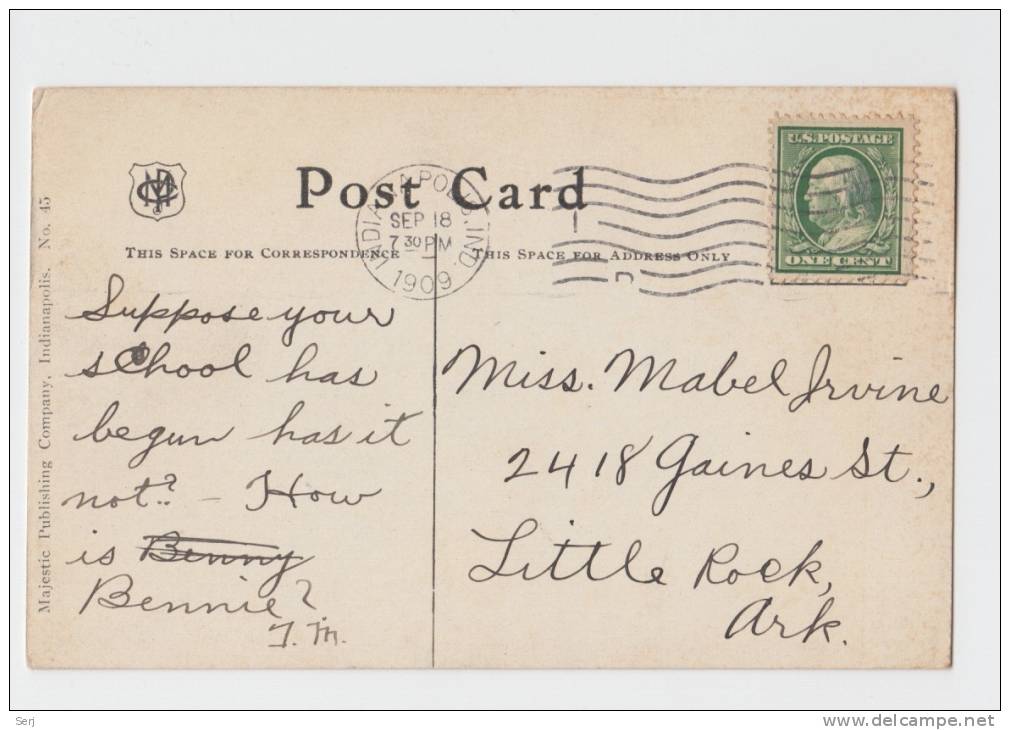 Post Card
U.S. POSTAGE
ONE CENT
INDIANAPOLIS, IND.
SEP 18
7 30 PM
1909
THIS SPACE FOR CORRESPONDENCE
THIS SPACE FOR ADDRESS ONLY
Majestic Publishing Company, Indianapolis. No. 45
Suppose your
school has
begun has it
not? – How
is Benny
Bennie?
T. M.
Miss. Mabel Irvine
2418 Gaines St.,
Little Rock,
Ark.
Serj
www.delcampe.net